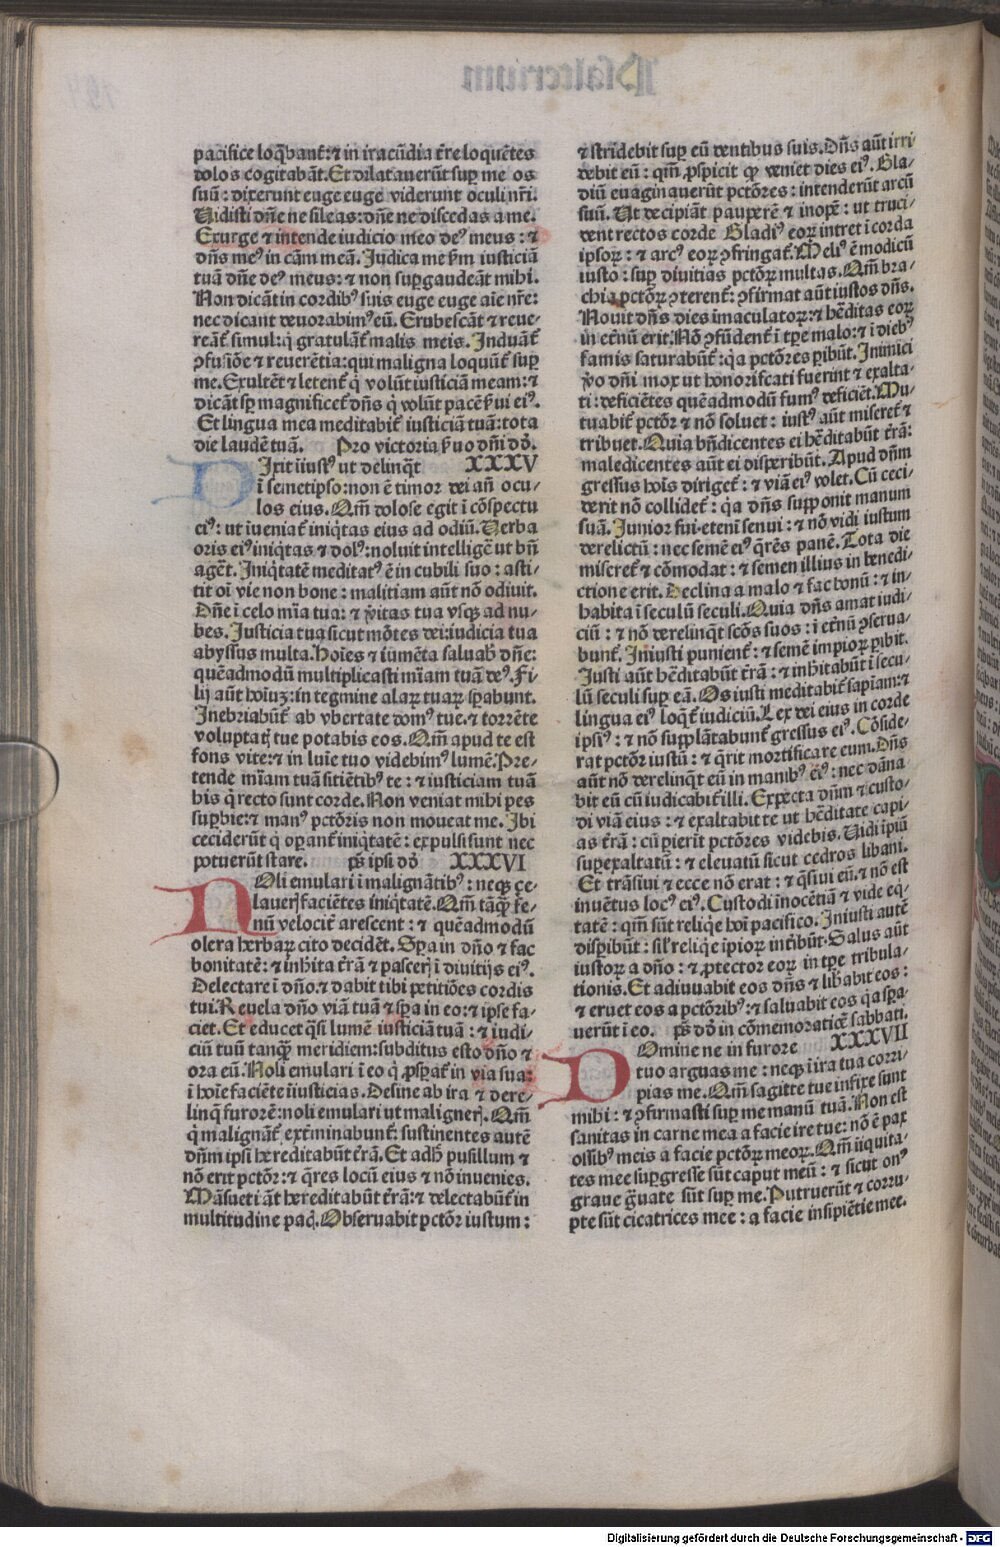 pacifice loq̄bant᷑: ⁊ in iracūdia t̄re loquētes
dolos cogitabāt. Et dilatauerūt suꝑ me os
suū: dixerunt euge euge viderunt oculi nr̄i.
Uidisti dn̄e ne sileas: dn̄e ne discedas a me.
Exurge ⁊ intende iudicio meo deꝰ meus: ⁊
dn̄s meꝰ in cām meā. Judica me ẜm iusticiā
tuā dn̄e deꝰ meus: ⁊ non suꝑgaudeāt mihi.
Non dicāt in cordibꝰ suis euge euge aīe nr̄e:
nec dicant deuorabimꝰ eū. Erubescāt ⁊ reue-
reāt᷑ simul: q̇ gratulāt᷑ malis meis. Induāt᷑
ꝯfusiōe ⁊ reuerētia: qui maligna loquūt᷑ suꝑ
me. Exultēt ⁊ letent᷑ q̇ volūt iusticiā meam: ⁊
dicāt sꝑ magnificet᷑ dn̄s q̇ volūt pacē ẜui eiꝰ.
Et lingua mea meditabit᷑ iusticiā tuā: tota
die laudē tuā. Pro victoria ẜuo dn̄i dō.
Dixit iiustꝰ ut delinq̄t XXXV
ī semetipso: non ē timor dei an̄ ocu-
los eius. Qm̄ dolose egit ī cōspectu
eiꝰ: ut īueniat᷑ iniq̇tas eius ad odiū. Uerba
oris eiꝰ iniq̇tas ⁊ dolꝰ: noluit intelligē ut bn̄
agēt. Iniq̇tatē meditatꝰ ē in cubili suo: asti-
tit oī vie non bone: malitiam aūt nō odiuit.
Dn̄e ī celo mīa tua: ⁊ v̄itas tua vsqꝫ ad nu-
bes. Justicia tua sicut mōtes dei: iudicia tua
abyssus multa. Hoīes ⁊ iumēta saluab̄ dn̄e:
quēadmodū multiplicasti mīam tuā deꝰ. Fi-
lij aūt hoīuꝫ: in tegmine alaꝝ tuaꝝ sꝑabunt.
Inebriabūt᷑ ab vbertate domꝰ tue: ⁊ torrēte
voluptatꝭ tue potabis eos. Qm̄ apud te est
fons vite: ⁊ in luīe tuo videbimꝰ lumē. Pre-
tende mīam tuā sciētibꝰ te: ⁊ iusticiam tuā
his q̇ recto sunt corde. Non veniat mihi pes
suꝑbie: ⁊ manꝰ pctōris non moueat me. Ibi
ceciderūt q̇ oꝑant᷑ iniq̇tatē: expulsi sunt nec
potuerūt stare. p̄s ipsi dō XXXVI
Noli emulari ī malignātibꝰ: neqꝫ ze-
lauerꝭ faciētes iniq̇tatē. Qm̄ tāqꝫ fe-
nū velocit᷑ arescent: ⁊ quēadmodū
olera herbaꝝ cito decidēt. Sꝑa in dn̄o ⁊ fac
bonitatē: ⁊ inhita t̄rā ⁊ pascerꝭ ī diuitijs eiꝰ.
Delectare ī dn̄o: ⁊ dabit tibi petitiōes cordis
tui. Reuela dn̄o viā tuā ⁊ sꝑa in eo: ⁊ ipse fa-
ciet. Et educet q̄si lumē iusticiā tuā: ⁊ iudi-
ciū tuū tanqꝫ meridiem: subditus esto dn̄o ⁊
ora eū. Noli emulari ī eo q̇ ꝓsꝑat᷑ in via sua:
ī hoīe faciēte iiusticias. Desine ab ira ⁊ dere-
linq̄ furorē: noli emulari ut malignerꝭ. Qm̄
q̇ malignāt᷑ ext̄minabunt᷑: sustinentes autē
dn̄m ipsi hereditabūt t̄rā. Et adhᷓ pusillum ⁊
nō erit pctōr: ⁊ q̄res locū eius ⁊ nō inuenies.
Māsueti aūt hereditabūt t̄rā: ⁊ delectabūt᷑ in
multitudine pacꝭ. Obseruabit pctōr iustum:
⁊ stridebit suꝑ eū dentibus suis. Dn̄s aūt irri
debit eū: qm̄ ꝓspicit qꝫ veniet dies eiꝰ. Gla-
diū euaginauerūt pctōres: intenderūt arcū
suū. Ut decipiāt pauperē ⁊ inopē: ut truci-
dent rectos corde Gladiꝰ eoꝝ intret ī corda
ipsoꝝ: ⁊ arcꝰ eoꝝ ꝯfringat᷑. Meliꝰ ē modicū
iusto: suꝑ diuitias pctōꝝ multas. Qm̄ bra-
chia pctōꝝ ꝯterent᷑: ꝯfirmat aūt iustos dn̄s.
Nouit dn̄s dies īmaculatoꝝ: ⁊ h̄editas eoꝝ
in et̄nū erit. Nō ꝯfūdent᷑ ī tꝑe malo: ⁊ ī diebꝰ
famis saturabūt᷑: q̇a pctōres ꝑibūt. Inimici
v̄o dn̄i mox ut honorificati fuerint ⁊ exalta-
ti: deficiētes quēadmodū fumꝰ deficiēt. Mu-
tuabit᷑ pctōr ⁊ nō soluet: iustꝰ aūt miseret᷑ ⁊
tribuet. Quia bn̄dicentes ei h̄editabūt t̄rā:
maledicentes aūt ei disꝑibūt. Apud dn̄m
gressus hoīs diriget᷑: ⁊ viā eiꝰ volet. Cū ceci-
derit nō collidet᷑: q̇a dn̄s supponit manum
suā. Junior fui ⁊ eteni senui: ⁊ nō vidi iustum
derelictū: nec semē eiꝰ q̄rēs panē. Tota die
miseret᷑ ⁊ cōmodat: ⁊ semen illius in benedi-
ctione erit. Declina a malo ⁊ fac bonū: ⁊ in-
habita ī seculū seculi. Quia dn̄s amat iudi-
ciū: ⁊ nō derelinq̄t scōs suos: ī et̄nū ꝯserua-
bunt᷑. Iniusti punient᷑: ⁊ semē impioꝝ ꝑibit.
Justi aūt h̄editabūt t̄rā: ⁊ inhitabūt ī secu-
lū seculi suꝑ eā. Os iusti meditabit᷑ sapīam: ⁊
lingua eiꝰ loq̄t᷑ iudiciū. Lex dei eius in corde
ipsiꝰ: ⁊ nō supplātabunt᷑ gressus eiꝰ. Cōside-
rat pctōr iustū: ⁊ q̄rit mortificare eum. Dn̄s
aūt nō derelinq̄t eū in manibꝰ eiꝰ: nec dāna
bit eū cū iudicabit᷑ illi. Expecta dn̄m ⁊ custo-
di viā eius: ⁊ exaltabit te ut h̄editate capi-
as t̄rā: cū ꝑierīt pctōres videbis. Uidi īpiū
suꝑexaltatū: ⁊ eleuatū sicut cedros libani.
Et trāsiui ⁊ ecce nō erat: ⁊ q̄siui eū: ⁊ nō est
inuētus locꝰ eiꝰ. Custodi inocētiā ⁊ vide eq̇-
tatē: qm̄ sūt reliq̇e hoī pacifico. Iniusti autē
disꝑibūt: sil̄ reliq̇e īpioꝝ int̄ibūt. Salus aūt
iustoꝝ a dn̄o: ⁊ ꝓtector eoꝝ in tꝑe tribula-
tionis. Et adiuuabit eos dn̄s ⁊ lib̄abit eos:
⁊ eruet eos a pctōribꝰ: ⁊ saluabit eos q̇a sꝑa-
uerūt ī eo. p̄s dō in cōmemoratiōe sabbati.
Domine ne in furore XXXVII
tuo arguas me: neqꝫ ī ira tua corri-
pias me. Qm̄ sagitte tue infixe sunt
mihi: ⁊ ꝯfirmasti suꝑ me manū tuā. Non est
sanitas in carne mea a facie ire tue: nō ē pax
ossibꝰ meis a facie pctōꝝ meoꝝ. Qm̄ iiquita-
tes mee suꝑgresse sūt caput meū: ⁊ sicut onꝰ
graue g̈uate sūt suꝑ me. Putruerūt ⁊ corru-
pte sūt cicatrices mee: a facie insipiētie mee.
Digitalisierung gefördert durch die Deutsche Forschungsgemeinschaft - DFG